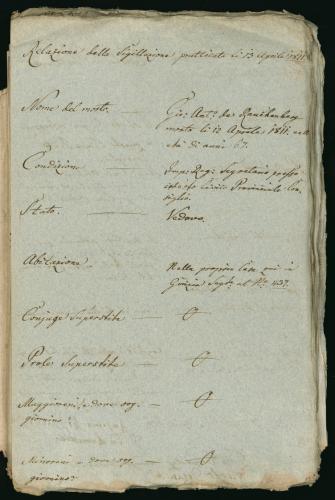 Relazione della Sigillazione pratticata li 13 Aprile 1811.
Nome del morto. — Gio: Ant: de
morto li 12 Aprile 1811. nell
età di anni 67.
Condizione — Imp: Reg: Segretario presso
Civico Provinciale Con-
siglio.
Stato. — Vedovo.
Abitazione — Nella propria Casa qui in
Gorizia al Nro. 437.
Conjuge Superstite — O
Prole Superstite — O
Maggiorani, e dove sog-
giornino? — O
Minorani e dove sog-
giornino? — O